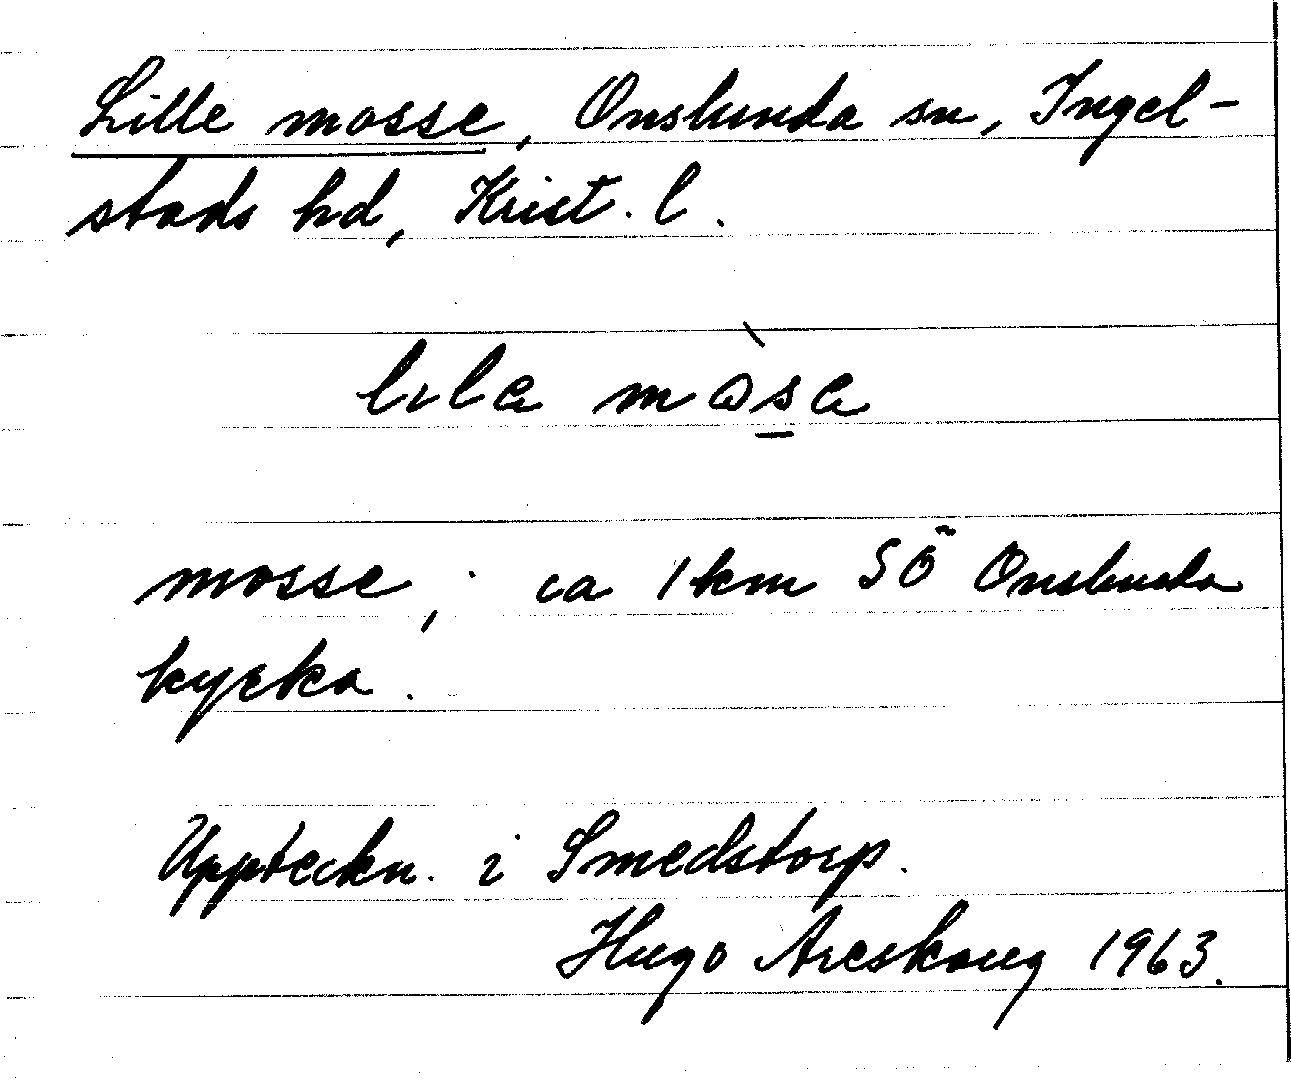 Lille mosse, Onslunda sn, Ingel-
stads hd, Krist. l.
lɩla mɷ̀s̱a
mosse; ca 1 km SÖ Onslunda
kyrka.
Uppteckn. i Smedstorp.
Hugo Areskoug 1963.